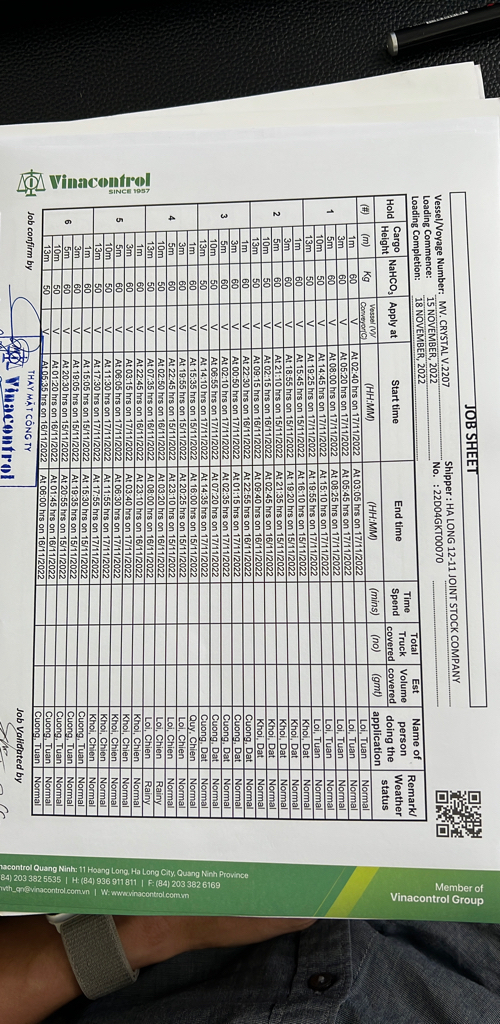 Vinacontrol
SINCE 1957
JOB SHEET
Vessel/Voyage Number: MV. CRYSTAL V.2207
Shipper : HA LONG 12-11 JOINT STOCK COMPANY
Loading Commence: 15 NOVEMBER, 2022
No. : 22D04GKT00070
Loading Completion: 18 NOVEMBER, 2022
Hold Cargo Height NaHCO3 Apply at Start time End time Time Spend Total Truck covered Est Volume covered Name of person doing the application Remark/ Weather status
(#) (m) Kg Vessel (V)/ Conveyor(C) (HH:MM) (HH:MM) (mins) (no) (gmt)
1 1m 60 V At 02:40 hrs on 17/11/2022 At 03:05 hrs on 17/11/2022 Loi, Tuan Normal
3m 60 V At 05:20 hrs on 17/11/2022 At 05:45 hrs on 17/11/2022 Loi, Tuan Normal
5m 60 V At 08:00 hrs on 17/11/2022 At 08:25 hrs on 17/11/2022 Loi, Tuan Normal
10m 50 V At 14:45 hrs on 17/11/2022 At 15:10 hrs on 17/11/2022 Loi, Tuan Normal
13m 50 V At 19:25 hrs on 17/11/2022 At 19:55 hrs on 17/11/2022 Loi, Tuan Normal
2 1m 60 V At 15:45 hrs on 15/11/2022 At 16:10 hrs on 15/11/2022 Khoi, Dat Normal
3m 60 V At 18:55 hrs on 15/11/2022 At 19:20 hrs on 15/11/2022 Khoi, Dat Normal
5m 60 V At 21:10 hrs on 15/11/2022 At 21:35 hrs on 15/11/2022 Khoi, Dat Normal
10m 50 V At 02:20 hrs on 16/11/2022 At 02:45 hrs on 16/11/2022 Khoi, Dat Normal
13m 50 V At 09:15 hrs on 16/11/2022 At 09:40 hrs on 16/11/2022 Khoi, Dat Normal
3 1m 60 V At 22:30 hrs on 16/11/2022 At 22:55 hrs on 16/11/2022 Cuong, Dat Normal
3m 60 V At 00:50 hrs on 17/11/2022 At 01:15 hrs on 17/11/2022 Cuong, Dat Normal
5m 60 V At 02:10 hrs on 17/11/2022 At 02:35 hrs on 17/11/2022 Cuong, Dat Normal
10m 50 V At 06:55 hrs on 17/11/2022 At 07:20 hrs on 17/11/2022 Cuong, Dat Normal
13m 50 V At 14:10 hrs on 17/11/2022 At 14:35 hrs on 17/11/2022 Cuong, Dat Normal
4 1m 60 V At 15:35 hrs on 15/11/2022 At 16:00 hrs on 15/11/2022 Quy, Chien Normal
3m 60 V At 19:55 hrs on 15/11/2022 At 20:05 hrs on 15/11/2022 Loi, Chien Normal
5m 60 V At 22:45 hrs on 15/11/2022 At 23:10 hrs on 15/11/2022 Loi, Chien Normal
10m 50 V At 02:50 hrs on 16/11/2022 At 03:20 hrs on 16/11/2022 Loi, Chien Rainy
13m 50 V At 07:35 hrs on 16/11/2022 At 08:00 hrs on 16/11/2022 Loi, Chien Rainy
5 1m 60 V At 22:45 hrs on 16/11/2022 At 23:10 hrs on 16/11/2022 Khoi, Chien Normal
3m 60 V At 03:15 hrs on 17/11/2022 At 03:40 hrs on 17/11/2022 Khoi, Chien Normal
5m 60 V At 06:05 hrs on 17/11/2022 At 06:30 hrs on 17/11/2022 Khoi, Chien Normal
10m 50 V At 11:30 hrs on 17/11/2022 At 11:55 hrs on 17/11/2022 Khoi, Chien Normal
13m 50 V At 17:30 hrs on 17/11/2022 At 17:55 hrs on 17/11/2022 Khoi, Chien Normal
6 1m 60 V At 13:05 hrs on 15/11/2022 At 13:30 hrs on 15/11/2022 Cuong, Tuan Normal
3m 60 V At 19:05 hrs on 15/11/2022 At 19:35 hrs on 15/11/2022 Cuong, Tuan Normal
5m 60 V At 20:30 hrs on 15/11/2022 At 20:55 hrs on 15/11/2022 Cuong, Tuan Normal
10m 50 V At 01:20 hrs on 16/11/2022 At 01:45 hrs on 16/11/2022 Cuong, Tuan Normal
13m 50 V At 05:35 hrs on 16/11/2022 At 06:00 hrs on 16/11/2022 Cuong, Tuan Normal
Job confirm by
Job Validated by
THAY MẶT CÔNG TY
Vinacontrol
Member of
Vinacontrol Group
nacontrol Quang Ninh: 11 Hoang Long, Ha Long City, Quang Ninh Province
84) 203 382 5535 | H: (84) 936 911 811 | F: (84) 203 382 6169
nvth_qn@vinacontrol.com.vn | W: www.vinacontrol.com.vn